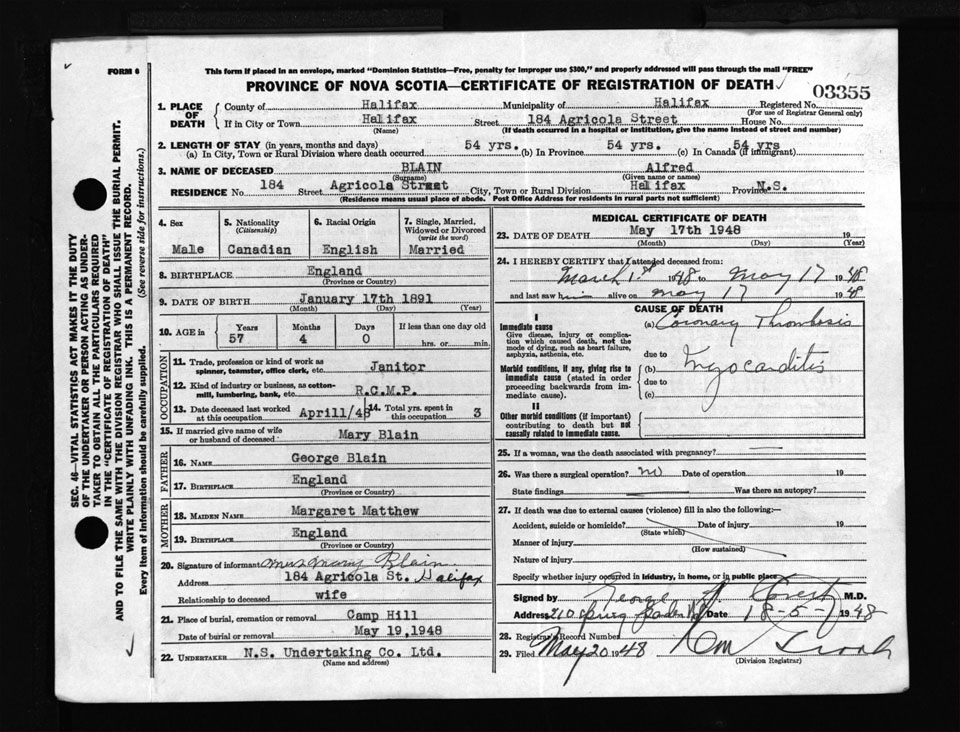 FORM 6
This form if placed in an envelope, marked "Dominion Statistics—Free, penalty for improper use $300," and properly addressed will pass through the mail "FREE"
PROVINCE OF NOVA SCOTIA—CERTIFICATE OF REGISTRATION OF DEATH
03355
1. PLACE OF DEATH
County of Halifax Municipality of Halifax Registered No.
(For use of Registrar General only)
If in City or Town Halifax Street 184 Agricola Street House No.
(Name) (If death occurred in a hospital or institution, give the name instead of street and number)
2. LENGTH OF STAY (in years, months and days)
(a) In City, Town or Rural Division where death occurred 54 yrs. (b) In Province 54 yrs. (c) In Canada (if immigrant) 54 yrs
3. NAME OF DECEASED BLAIN Alfred
(Surname) (Given name or names)
RESIDENCE No 184 Street Agricola Street City, Town or Rural Division Halifax Province N.S.
(Residence means usual place of abode. Post Office Address for residents in rural parts not sufficient)
4. Sex
Male
5. Nationality
(Citizenship)
Canadian
6. Racial Origin
English
7. Single, Married, Widowed or Divorced
(write the word)
Married
8. BIRTHPLACE England
(Province or Country)
9. DATE OF BIRTH January 17th 1891
(Month) (Day) (Year)
10. AGE in Years Months Days If less than one day old
57 4 0 hrs. or min.
OCCUPATION
11. Trade, profession or kind of work as spinner, teamster, office clerk, etc. Janitor
12. Kind of industry or business, as cotton-mill, lumbering, bank, etc. R.C.M.P.
13. Date deceased last worked at this occupation Aprill/48
14. Total yrs. spent in this occupation 3
15. If married give name of wife or husband of deceased Mary Blain
FATHER
16. NAME George Blain
17. BIRTHPLACE England
(Province or Country)
MOTHER
18. MAIDEN NAME Margaret Matthew
19. BIRTHPLACE England
(Province or Country)
20. Signature of informant Mrs Mary Blain
Address 184 Agricola St. Halifax
Relationship to deceased wife
21. Place of burial, cremation or removal Camp Hill
Date of burial or removal May 19,1948
22. UNDERTAKER N.S. Undertaking Co. Ltd.
(Name and address)
MEDICAL CERTIFICATE OF DEATH
23. DATE OF DEATH May 17th 1948 19
(Month) (Day) (Year)
24. I HEREBY CERTIFY that I attended deceased from:
March 1st 1948 to May 17 1948
and last saw him alive on May 17 1948
CAUSE OF DEATH
I
Immediate cause
Give disease, injury or complication which caused death, not the mode of dying, such as heart failure, asphyxia, asthenia, etc.
(a) Coronary Thrombosis
due to
Morbid conditions, if any, giving rise to immediate cause (stated in order proceeding backwards from immediate cause).
(b) Myocarditis
due to
(c)
II
Other morbid conditions (if important) contributing to death but not causally related to immediate cause.
25. If a woman, was the death associated with pregnancy?
26. Was there a surgical operation? no Date of operation 19
State findings Was there an autopsy?
27. If death was due to external causes (violence) fill in also the following:—
Accident, suicide or homicide? Date of injury 19
(State which)
Manner of injury
(How sustained)
Nature of injury
Specify whether injury occurred in industry, in home, or in public place
Signed by George M.D.
Address 210 Spring Garden Rd Date 18-5-1948
28. Registrar's Record Number
29. Filed May 20 1948
(Division Registrar)
SEC. 46—VITAL STATISTICS ACT MAKES IT THE DUTY
OF THE UNDERTAKER OR PERSON ACTING AS UNDER-
TAKER TO OBTAIN ALL THE PARTICULARS REQUIRED
IN THE "CERTIFICATE OF REGISTRATION OF DEATH"
AND TO FILE THE SAME WITH THE DIVISION REGISTRAR WHO SHALL ISSUE THE BURIAL PERMIT.
WRITE PLAINLY WITH UNFADING INK. THIS IS A PERMANENT RECORD.
Every item of information should be carefully supplied. (See reverse side for instructions.)